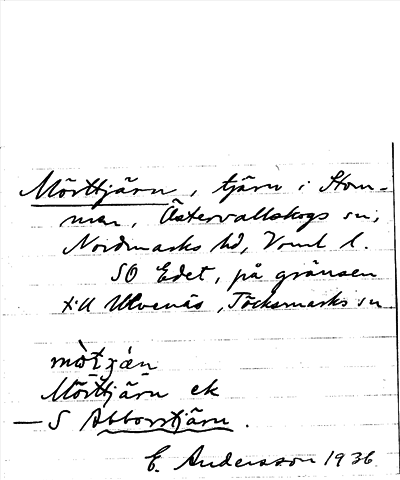 Mörttjärn, tjärn i Stom-
men, Östervallskogs sn,
Nordmarks hd, Vrml l.
SO Edet, på gränsen
till Ulvenäs, Töcksmarks sn
Mörttjärn ek
— S Abborrtjärn.
E. Andersson 1936